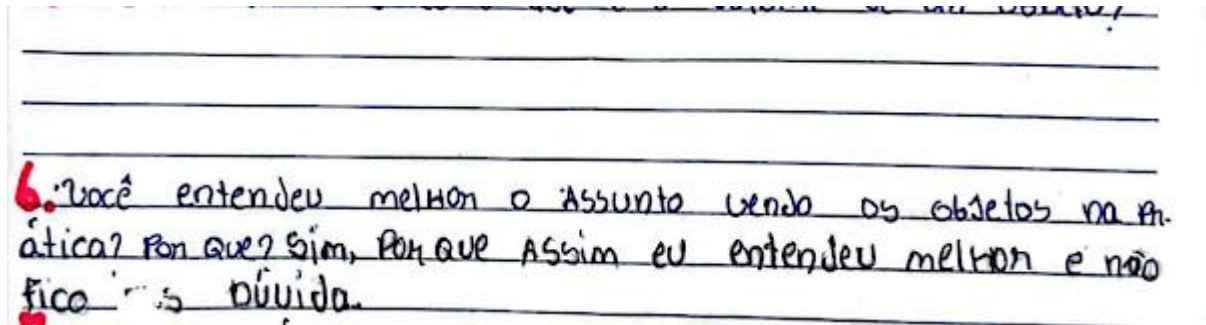 6. Você entendeu melhor o Assunto vendo os objetos na pr-
ática? Por que? Sim, Porque Assim eu entendeu melhor e não
fico Dúvida.